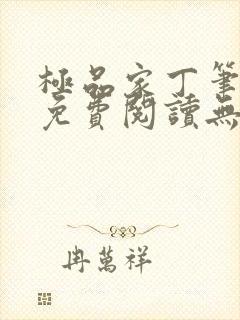 極品家丁筆
免費閱讀無
冉萬祥